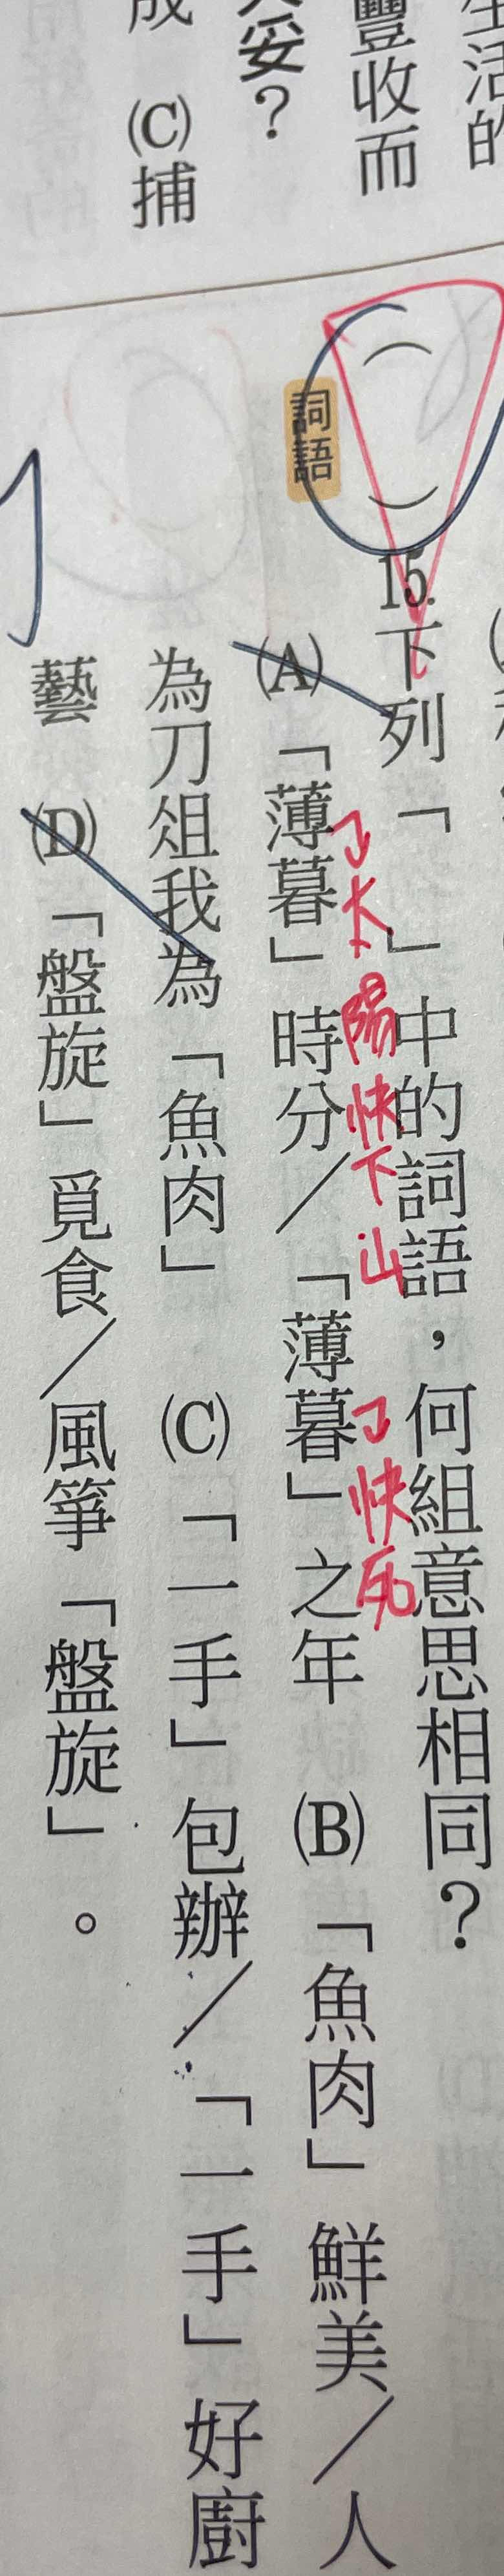 生活的
豐收而
妥？
成　(C)捕
（　）15.下列「　」中的詞語，何組意思相同？
詞語
(A)「薄暮」時分／「薄暮」之年　(B)「魚肉」鮮美／人
為刀俎我為「魚肉」　(C)「一手」包辦／「一手」好廚
藝　(D)「盤旋」覓食／風箏「盤旋」。
太陽快下山
快死